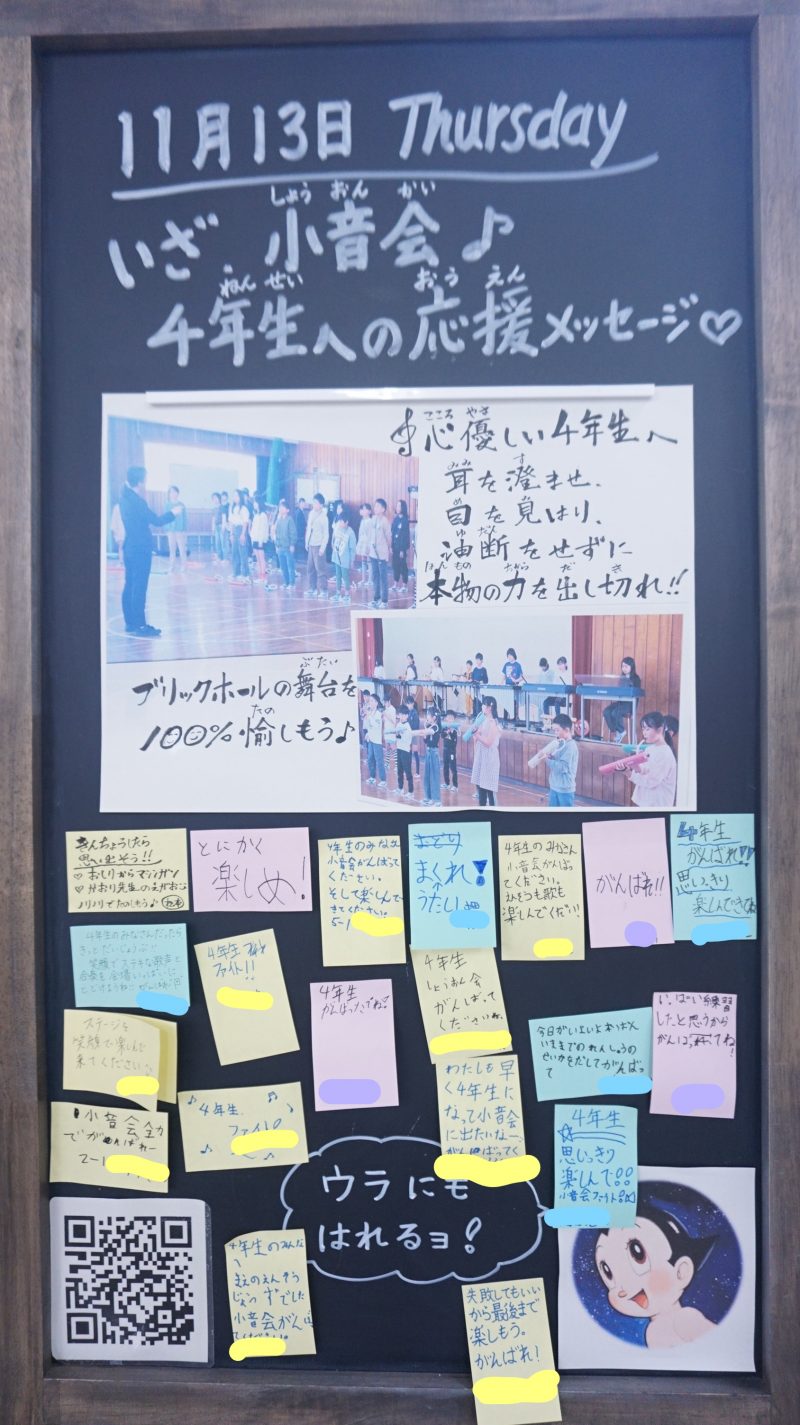 11月13日 Thursday
しょう おん かい
いざ 小音会♪
ねん せい おう えん
4年生への応援メッセージ♡
こころ やさ
心優しい4年生へ
みみ す
耳を澄ませ、
目を見はり、
ゆ だん
油断をせずに
ほん もの ちから だ き
本物の力を出し切れ!!
ぶ たい
ブリックホールの舞台を
たの
100%愉しもう♪
きんちょうしたら
思い出そう!!
♡おしりからマシンガン
ノリノリでたのしもう♪
とにかく
楽しめ!
4年生のみなさん
小音会がんばって
ください。
そして楽しんで
きてください。
5-1
まくれ!
うたい
4年生のみなさん
小音会がんばっ
てください。
えんそうも歌も
楽しんでください!
がんばれ!!
4年生
がんばれ!!
思いっきり
楽しんできてね
4年生のみなさんだったら
きっとだいじょうぶ!!
笑顔でステキな歌声と
合奏を会場いっぱいに
とどけようね!
4年生
ファイト!!
4年生
がんばったでね?
4年生
しょうおん会
がんばって
くださいね。
今日がいよいよ本ばん
いままでのれんしゅうの
せいかをだしてがんばっ
て
いっぱい練習
したと思うから
がんばってね!
ステージを
笑顔で楽しんで
来てください。
小音会全力
でがんばれー
2-1
4年生
ファイト
わたしも早
く4年生に
なって小音会
に出たいなー。
がんばってく
4年生
思いっきり
楽しんで!!
小音会ファイト
ウラにも
はれるヨ!
4年生のみんな
まえのえんそう
じょうずでした
小音会がんば
ってください。
失敗してもいい
から最後まで
楽しもう。
がんばれ!